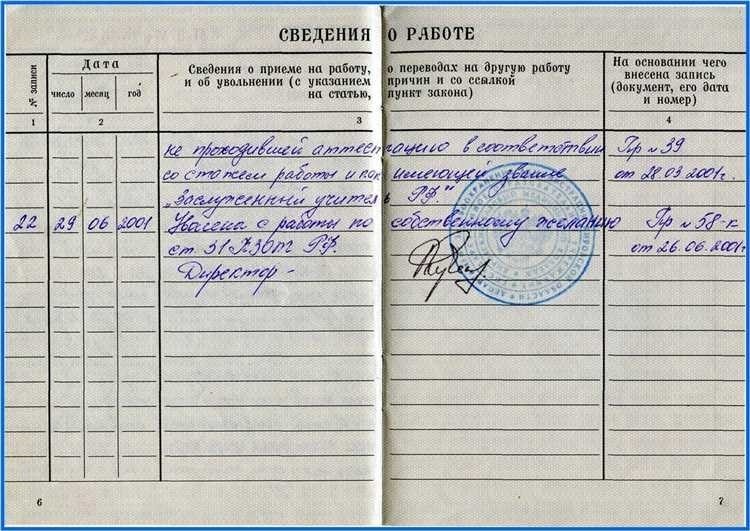 СВЕДЕНИЯ О РАБОТЕ
№ записи
Дата
число месяц год
Сведения о приеме на работу, о переводах на другую работу
и об увольнении (с указанием причин и со ссылкой
на статью, пункт закона)
На основании чего
внесена запись
(документ, его дата
и номер)
1 2 3 4
не проходившей аттестацию в соответствии Пр №39
со стажем работы и как имеющей звание от 28.03.2001г.
„Заслуженный учитель РФ."
22 29 06 2001 Уволена с работы по собственному желанию Пр №58-к
ст 31 КЗОТ РФ. от 26.06.2001г.
Директор -
6 7